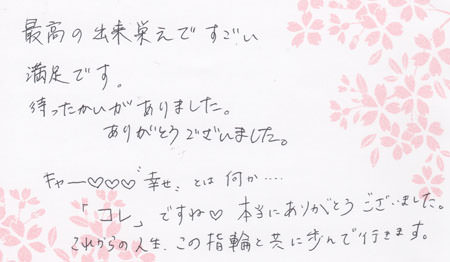 最高の出来栄えですごい
満足です。
待ったかいがありました。
ありがとうございました。
キャー♡♡♡〝幸せ〟とは何か‥‥
「コレ」ですね♡ 本当にありがとうございました。
これからの人生、この指輪と共に歩んで行きます。